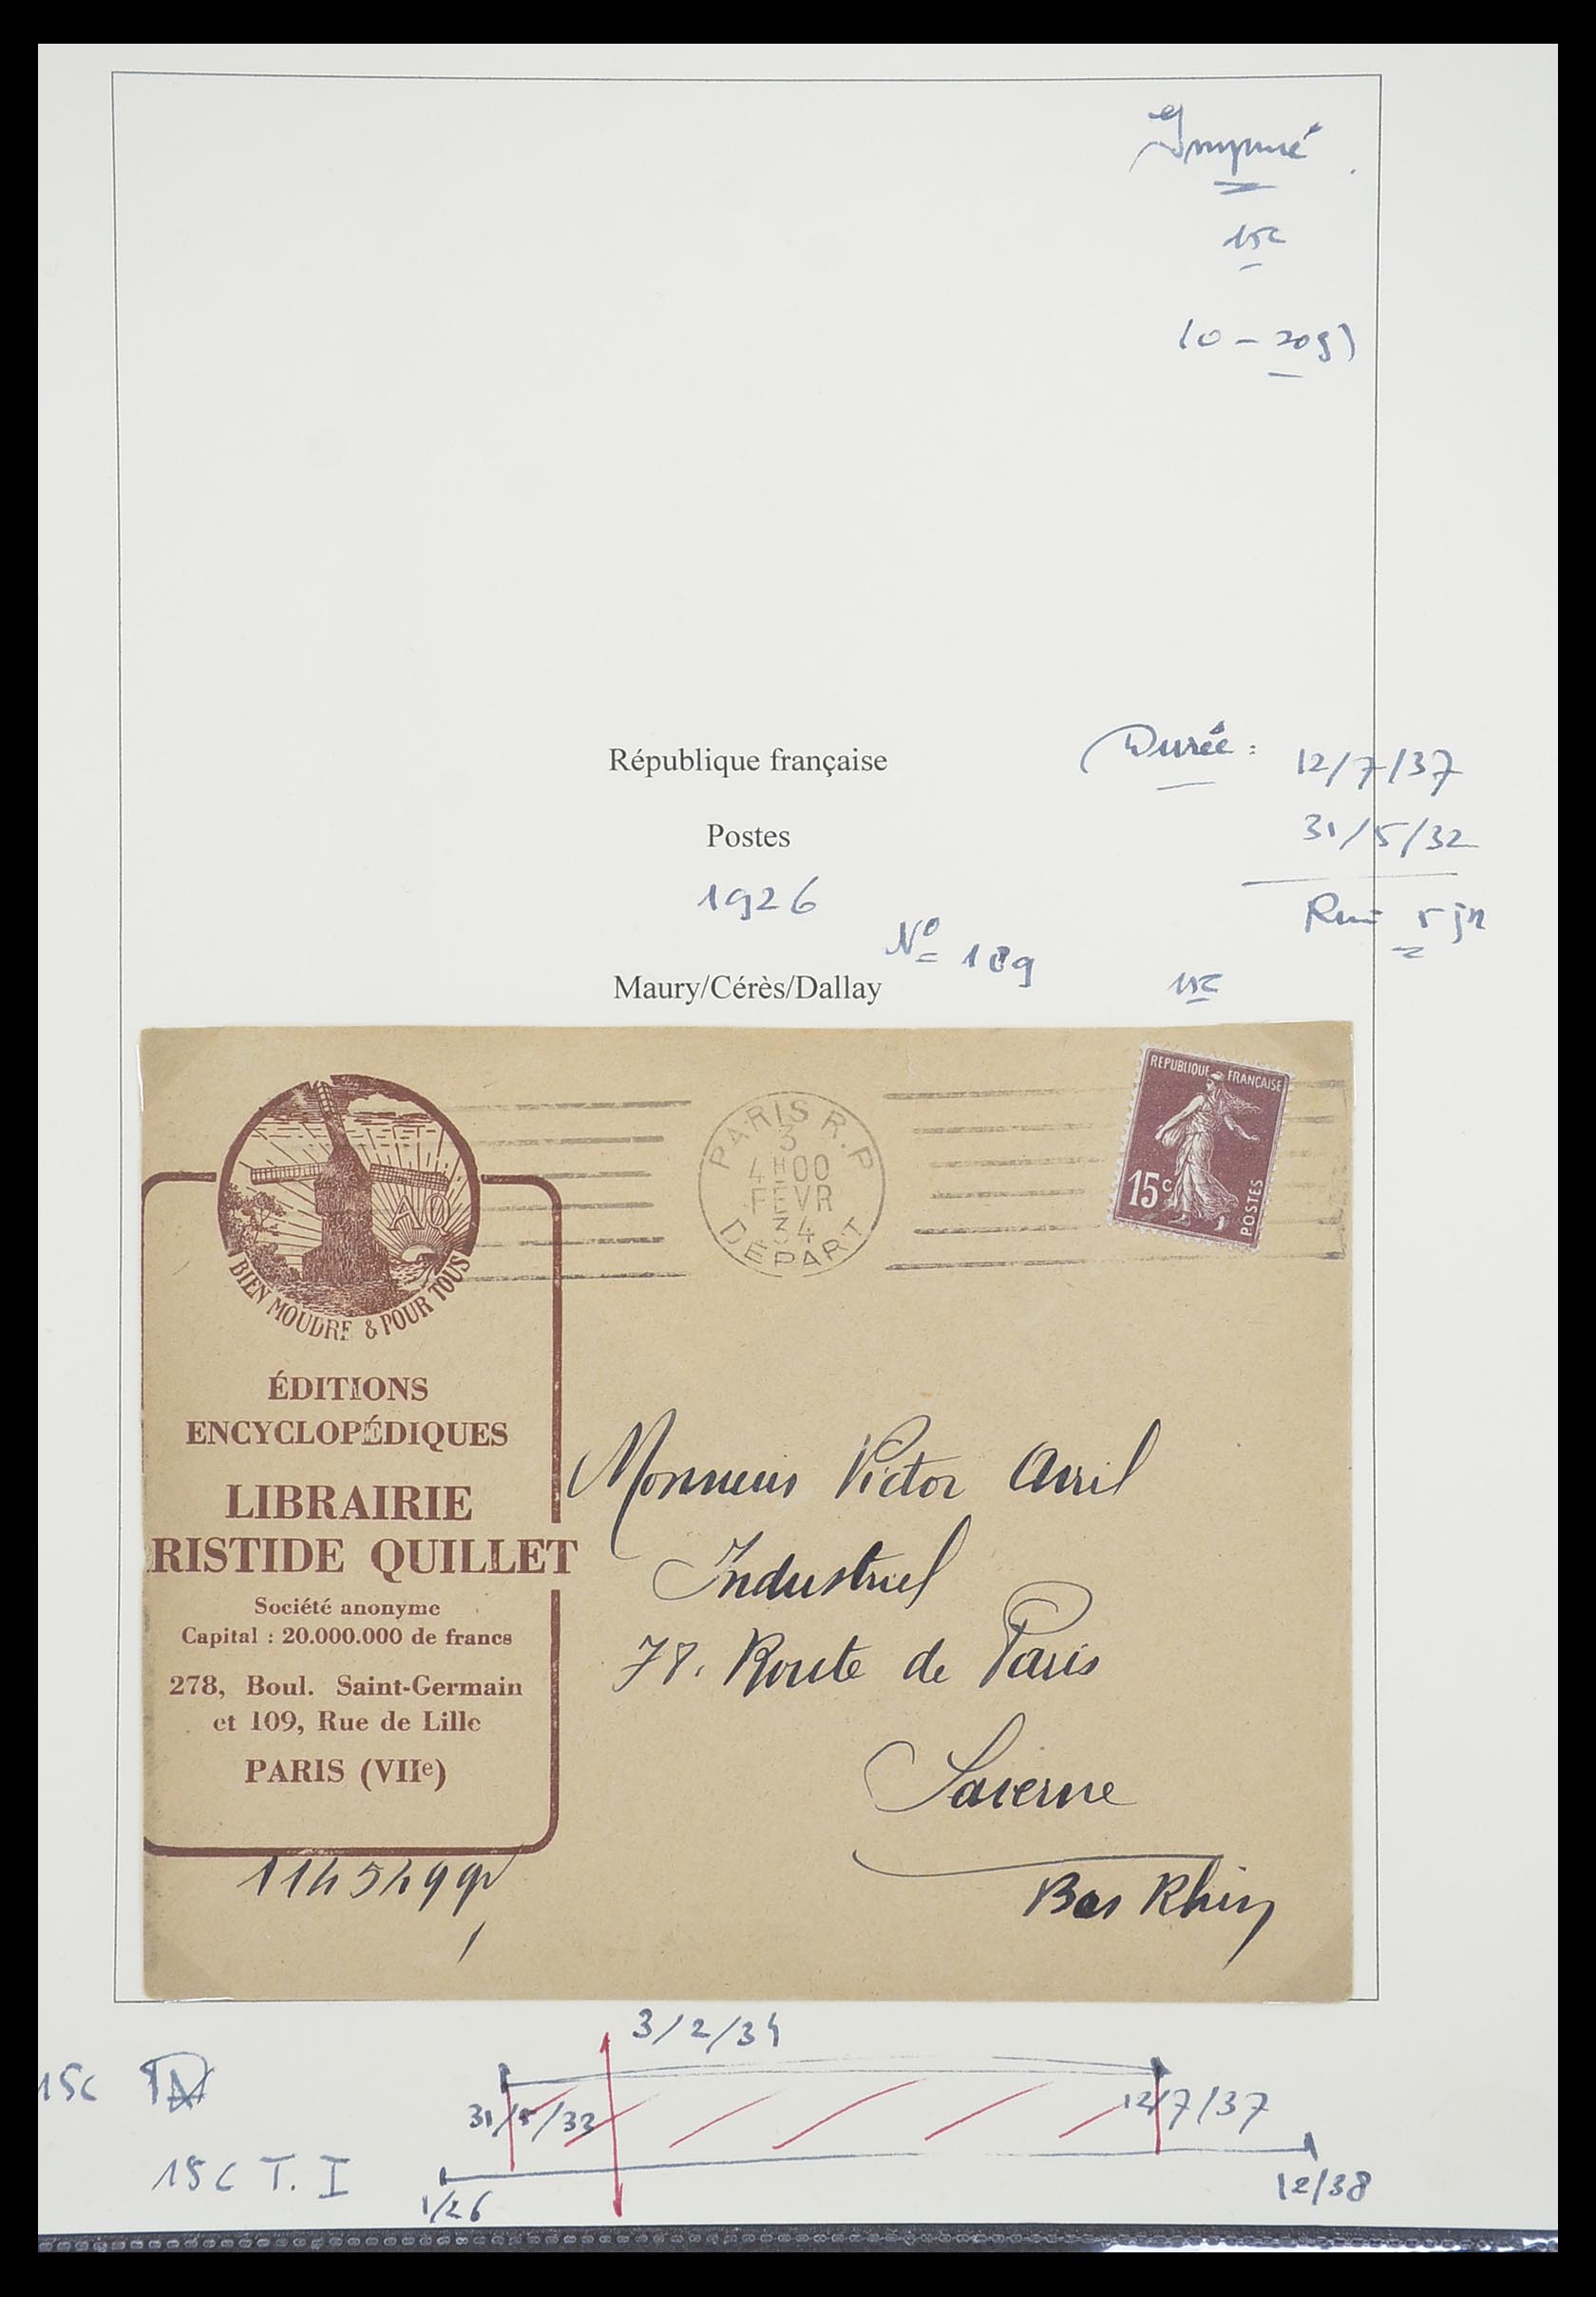 Imprimé
15c
(0 - 20g)
République française
Durée :
12/7/37
Postes
31/5/32
1926
5
No 189
Maury/Cérès/Dallay
15c
REPUBLIQUE FRANÇAISE
15c
POSTES
PARIS R.P
3
4H00
FEVR
34
DEPART
AQ
BIEN MOUDRE & POUR TOUS
ÉDITIONS
ENCYCLOPÉDIQUES
LIBRAIRIE
RISTIDE QUILLET
Société anonyme
Capital : 20.000.000 de francs
278, Boul. Saint-Germain
et 109, Rue de Lille
PARIS (VIIe)
Monsieur Victor Avril
Industriel
78. Route de Paris
Saverne
Bas Rhin
3/2/34
15c
31/5/32
12/7/37
15c T. I
1/26
12/38